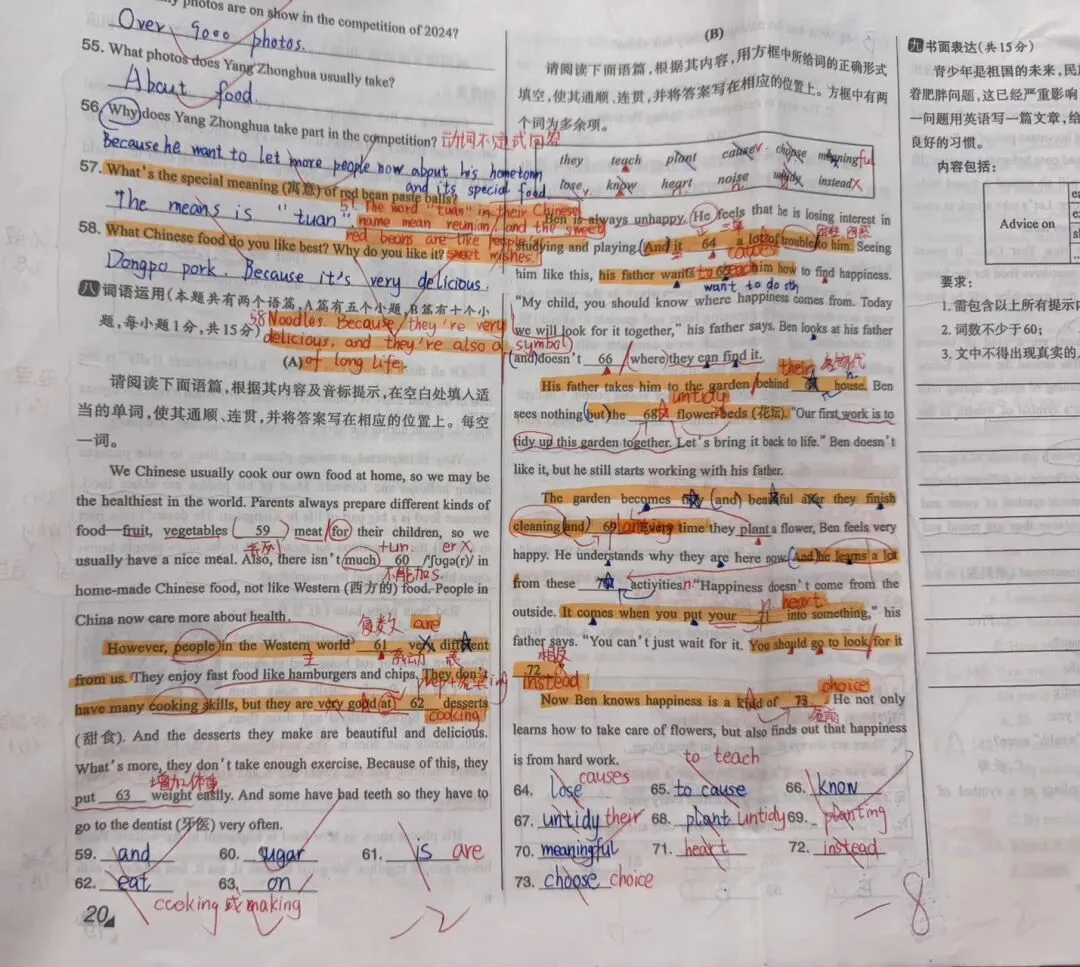 photos are on show in the competition of 2024?
Over 9000 photos.
55. What photos does Yang Zhonghua usually take?
About food.
56. Why does Yang Zhonghua take part in the competition? 动词不定式回答
Because he want to let more people now about his hometown
and its special food
57. What's the special meaning (寓意) of red bean paste balls?
The means is "tuan".
57. The word "tuan" in their Chinese
name mean reunion, and the sweet
red beans are like people
sweet wishes.
58. What Chinese food do you like best? Why do you like it?
Dongpo pork. Because it's very delicious.
八 词语运用(本题共有两个语篇,A篇有五个小题,B篇有十个小
题,每小题1分,共15分)
58 Noodles. Because they're very
delicious, and they're also a symbol
of long life.
(A)
请阅读下面语篇,根据其内容及音标提示,在空白处填入适
当的单词,使其通顺、连贯,并将答案写在相应的位置上。每空
一词。
We Chinese usually cook our own food at home, so we may be
the healthiest in the world. Parents always prepare different kinds of
food—fruit, vegetables 59 meat for their children, so we
usually have a nice meal. Also, there isn't much 60 /ˈʃʊɡə(r)/ in
不能加s.
home-made Chinese food, not like Western (西方的) food. People in
China now care more about health.
复数 are
However, people in the Western world 61 very different
from us. They enjoy fast food like hamburgers and chips. They don't
have many cooking skills, but they are very good at 62 desserts
cooking
(甜食). And the desserts they make are beautiful and delicious.
What's more, they don't take enough exercise. Because of this, they
增加体重
put 63 weight easily. And some have bad teeth so they have to
go to the dentist (牙医) very often.
59. and 60. sugar 61. is are
62. eat 63. on
cooking 或 making
20
-2
(B)
请阅读下面语篇,根据其内容,用方框中所给词的正确形式
填空,使其通顺、连贯,并将答案写在相应的位置上。方框中有两
个词为多余项。
they teach plant cause v. choose meaningful
lose v know heart noise n. untidy instead
Ben is always unhappy. He feels that he is losing interest in
studying and playing. And it 64 a lot of trouble to him. Seeing
causes
him like this, his father wants 65 him how to find happiness.
to teach
want to do sth
"My child, you should know where happiness comes from. Today
we will look for it together," his father says. Ben looks at his father
and doesn't 66 where they can find it.
their
His father takes him to the garden behind 67 house. Ben
untidy
sees nothing but the 68 flower beds (花坛). "Our first work is to
tidy up this garden together. Let's bring it back to life." Ben doesn't
like it, but he still starts working with his father.
The garden becomes tidy and beautiful after they finish
cleaning and 69 . Every time they plant a flower, Ben feels very
happy. He understands why they are here now. And he learns a lot
from these 70 activities. "Happiness doesn't come from the
outside. It comes when you put your 71 into something," his
heart
father says. "You can't just wait for it. You should go to look for it
72
相反
instead
Now Ben knows happiness is a kind of 73 . He not only
choice
learns how to take care of flowers, but also finds out that happiness
is from hard work.
causes to teach
64. lose 65. to cause 66. know
67. untidy their 68. plant untidy 69. planting
70. meaningful 71. heart 72. instead
73. choose choice
-8
九 书面表达(共15分)
青少年是祖国的未来,民
着肥胖问题,这已经严重影响
一问题用英语写一篇文章,给
良好的习惯。
内容包括:
Advice on
要求:
1. 需包含以上所有提示
2. 词数不少于60;
3. 文中不得出现真实的